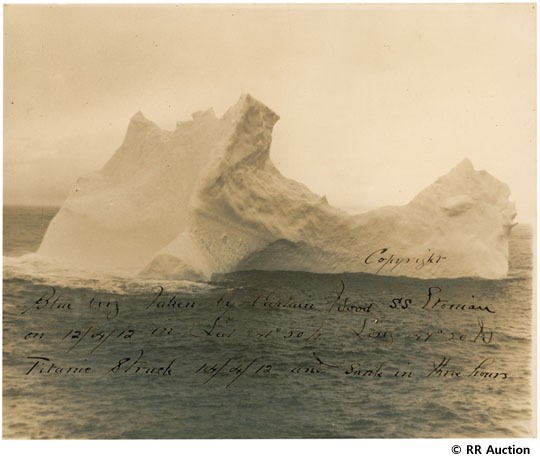 Copyright
Blue berg taken by Captain Wood SS Etonian
on 12/4/12 in Lat 41° 50 N Long 49° 50 W
Titanic Struck 14/4/12 and Sank in three hours
© RR Auction